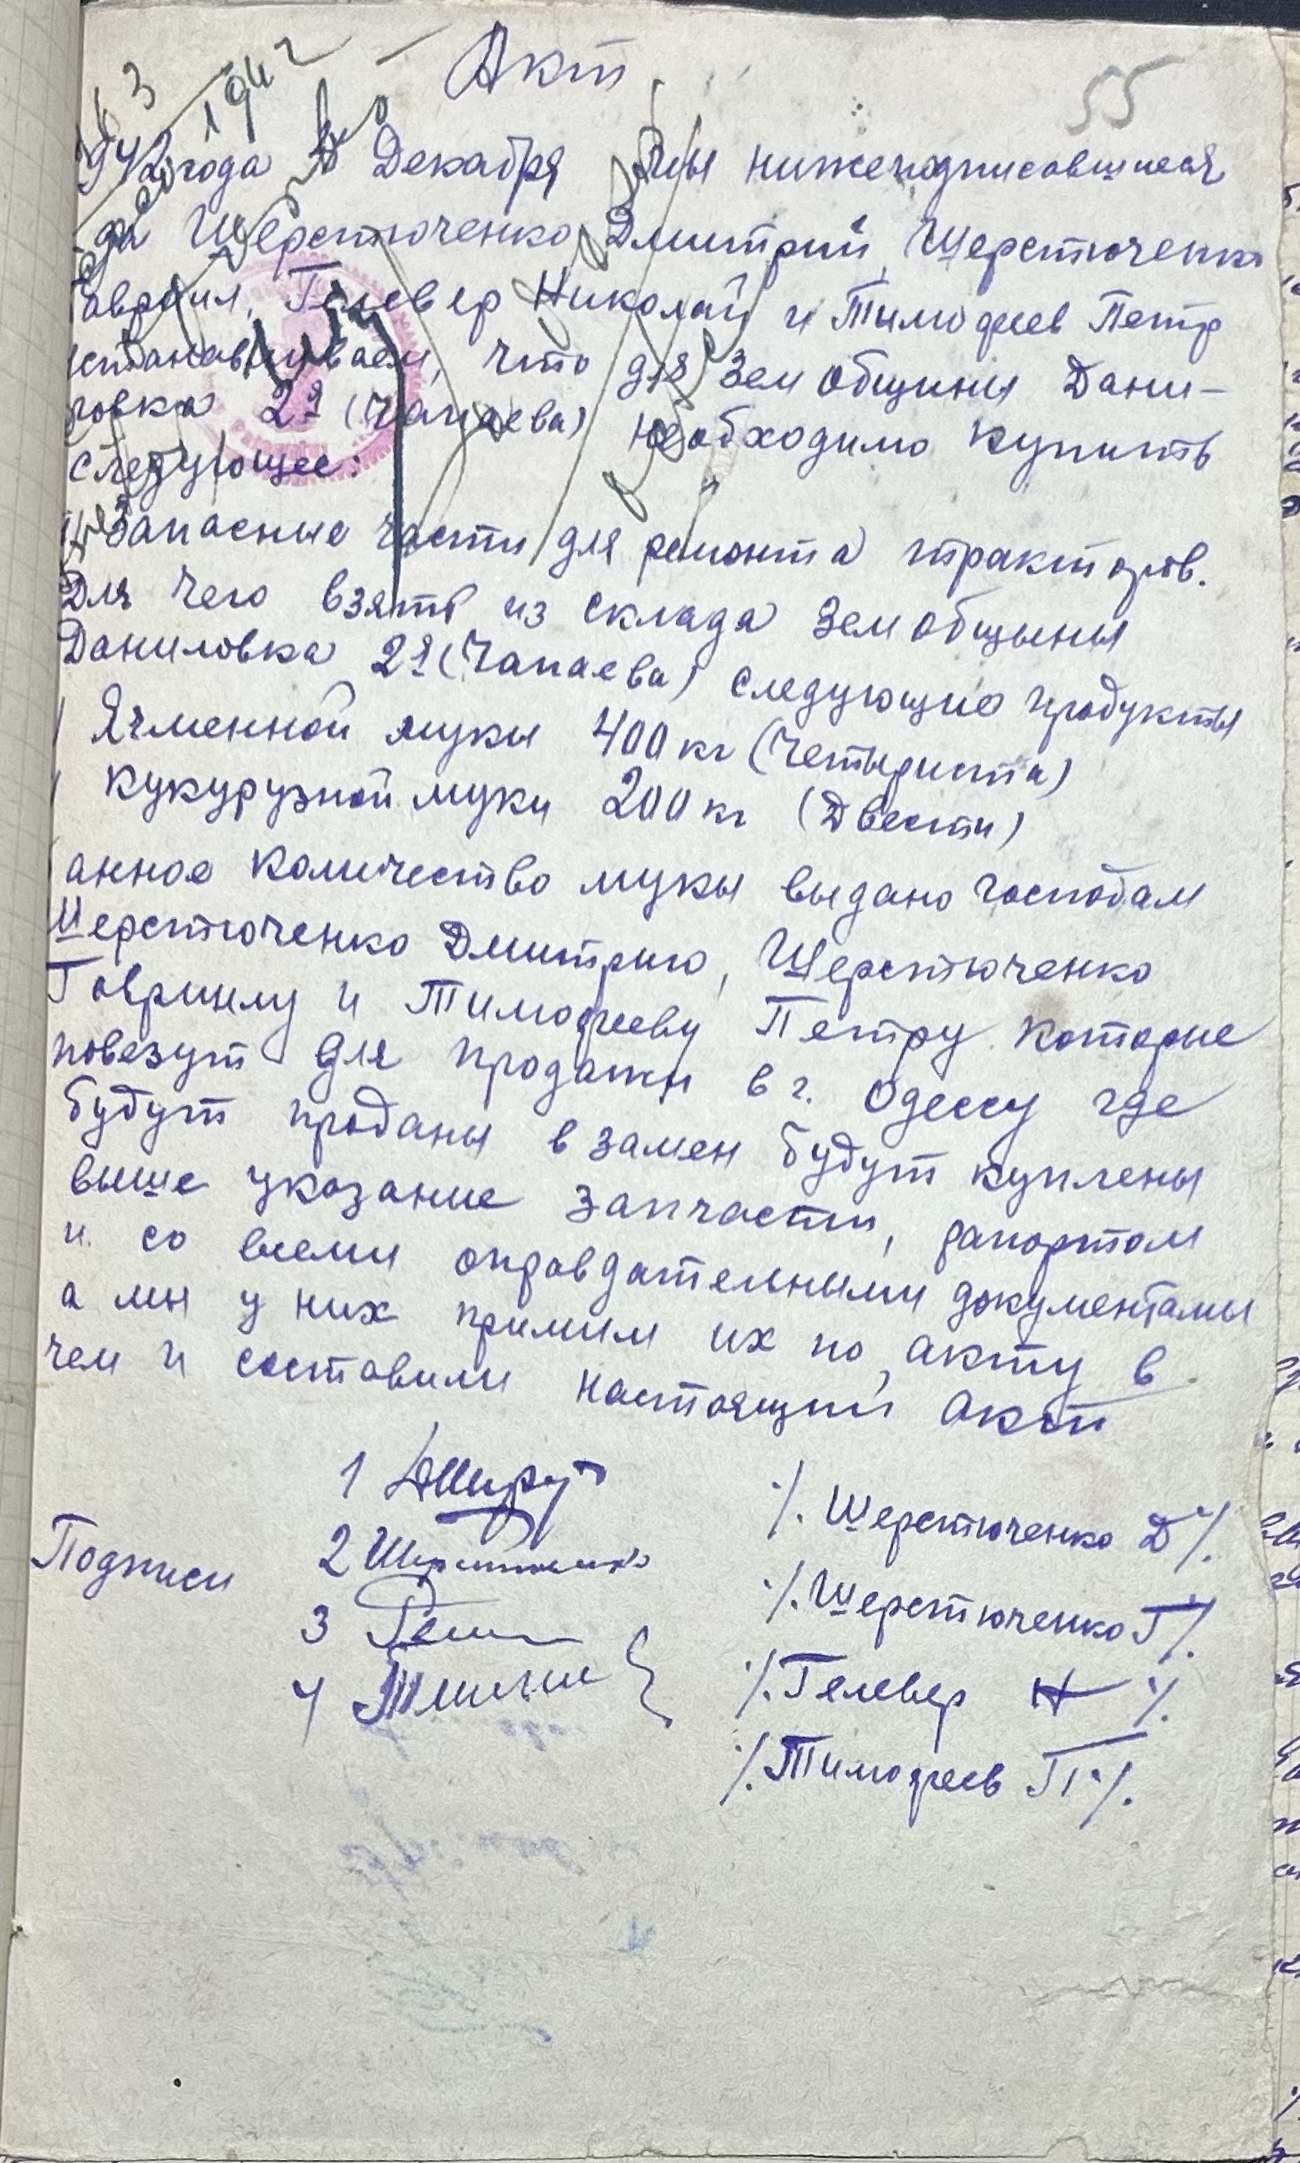 Акт
55
1942 года Декабря мы нижеподписавшиеся
Шерстюченко Дмитрий, Шерстюченко
Гавриил, Гелевер Николай и Тимофеев Петр
устанавливаем, что для Зем общины Дани-
ловка 2я (Чапаева) необходимо купить
следующее:
Запасные части для ремонта тракторов.
Для чего взять из склада Зем общыны
Даниловка 2я (Чапаева) следующие продукты
Ячменной муки 400 кг (Четыриста)
Кукурузной муки 200 кг (Двести)
анное Количество мукы выдано господам
Шерстюченко Дмитрию, Шерстюченко
Говриилу и Тимофееву Петру которые
повезут для продажи в г. Одессу где
будут проданы в замен будут куплены
выше указание запчасти, рапортом
и со всеми оправдательными документамы
а мы у них примим их по акту в
чем и составили настоящий Акт
1
% Шерстюченко Д %
Подписи 2
% Шерстюченко Г %
3
% Гелевер Н %
4
% Тимофеев П %